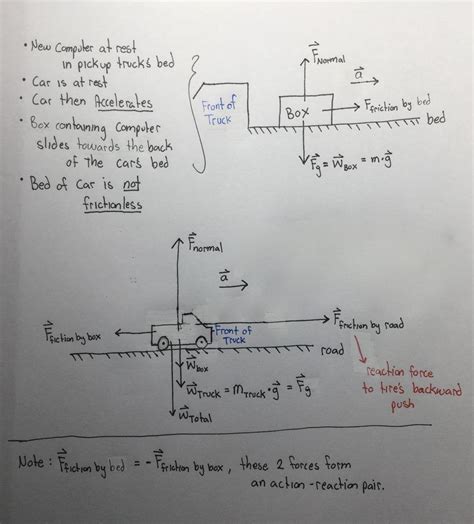 • New Computer at rest
in pickup truck's bed
• Car is at rest
• Car then Accelerates
• Box containing Computer
slides towards the back
of the car's bed
• Bed of Car is not
frictionless
Front of
Truck
F Normal
a
Box
F friction by bed
bed
Fg = W Box = m·g
F normal
a
F fiction by box
Front of
Truck
F friction by road
road
W box
W Truck = m Truck · g = Fg
W Total
reaction force
to tire's backward
push
Note: F friction by bed = - F friction by box, these 2 forces form
an action-reaction pair.